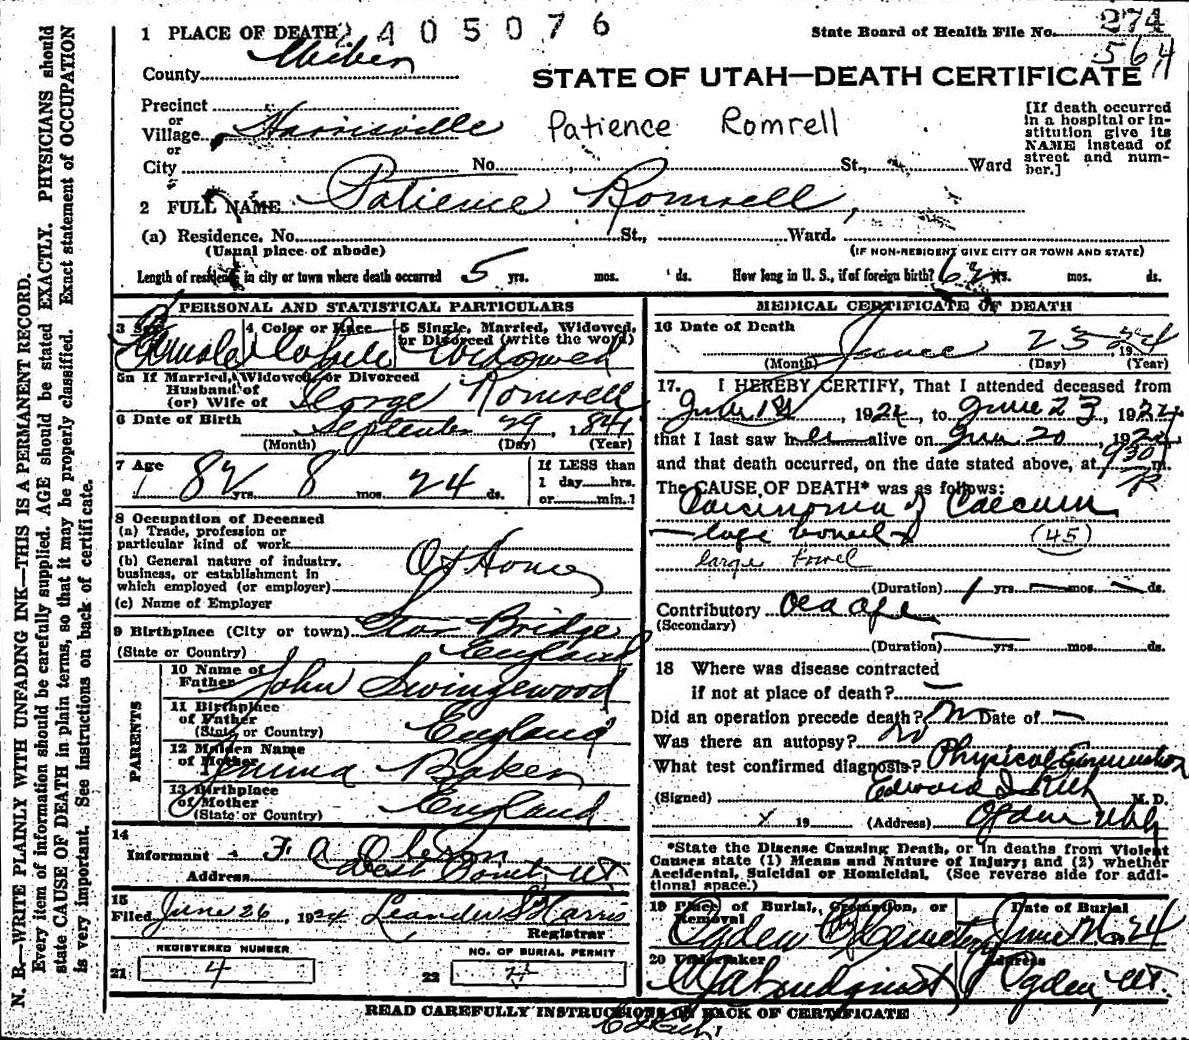 1 PLACE OF DEATH 2405076
State Board of Health File No. 274
564
County Weber
STATE OF UTAH—DEATH CERTIFICATE
Precinct
or
Village Harrisville
Patience Romrell
or
City No. St., Ward
[If death occurred
in a hospital or in-
stitution give its
NAME instead of
street and num-
ber.]
2 FULL NAME Patience Romrell,
(a) Residence. No. St., Ward.
(Usual place of abode) (IF NON-RESIDENT GIVE CITY OR TOWN AND STATE)
Length of residence in city or town where death occurred 5 yrs. mos. ds. How long in U. S., if of foreign birth? 62 yrs. mos. ds.
PERSONAL AND STATISTICAL PARTICULARS
3 Sex 4 Color or Race 5 Single, Married, Widowed,
or Divorced (write the word)
Female White Widowed
5a If Married, Widowed, or Divorced
Husband of
(or) Wife of George Romrell
6 Date of Birth September 29, 1841
(Month) (Day) (Year)
7 Age 82 yrs. 8 mos. 24 ds.
If LESS than
1 day hrs.
or min.?
8 Occupation of Deceased
(a) Trade, profession or
particular kind of work
(b) General nature of industry,
business, or establishment in
which employed (or employer) At Home
(c) Name of Employer
9 Birthplace (City or town) Bridge
(State or Country) England
PARENTS
10 Name of
Father John Swingewood
11 Birthplace
of Father
(State or Country) England
12 Maiden Name
of Mother Emma Baker
13 Birthplace
of Mother
(State or Country) England
14
Informant F A
Address West Point Ut.
15
Filed June 26, 1924 Leander S Harris
Registrar
REGISTERED NUMBER NO. OF BURIAL PERMIT
21 4 22 4
MEDICAL CERTIFICATE OF DEATH
16 Date of Death June 23 1924
(Month) (Day) (Year)
17. I HEREBY CERTIFY, That I attended deceased from
June 1st, 1924, to June 23, 1924
that I last saw her alive on June 20, 1924
and that death occurred, on the date stated above, at 930 P m.
The CAUSE OF DEATH* was as follows:
Carcinoma of Caecum
large bowel (45)
large bowel
(Duration) 1 yrs. — mos. — ds.
Contributory Old age
(Secondary)
(Duration) yrs. mos. ds.
18 Where was disease contracted
if not at place of death? —
Did an operation precede death? No Date of —
Was there an autopsy? No
What test confirmed diagnosis? Physical Examination
(Signed) Edward I Rich M. D.
19 (Address) Ogden Utah
*State the Disease Causing Death, or in deaths from Violent
Causes state (1) Means and Nature of Injury; and (2) whether
Accidental, Suicidal or Homicidal. (See reverse side for addi-
tional space.)
19 Place of Burial, Cremation, or Date of Burial
Removal
Ogden City Cemetery June 26, 24
20 Undertaker Address
Lindquist Ogden, Ut.
READ CAREFULLY INSTRUCTIONS ON BACK OF CERTIFICATE
N. B.—WRITE PLAINLY WITH UNFADING INK—THIS IS A PERMANENT RECORD.
Every item of information should be carefully supplied. AGE should be stated EXACTLY. PHYSICIANS should
state CAUSE OF DEATH in plain terms, so that it may be properly classified. Exact statement of OCCUPATION
is very important. See instructions on back of certificate.